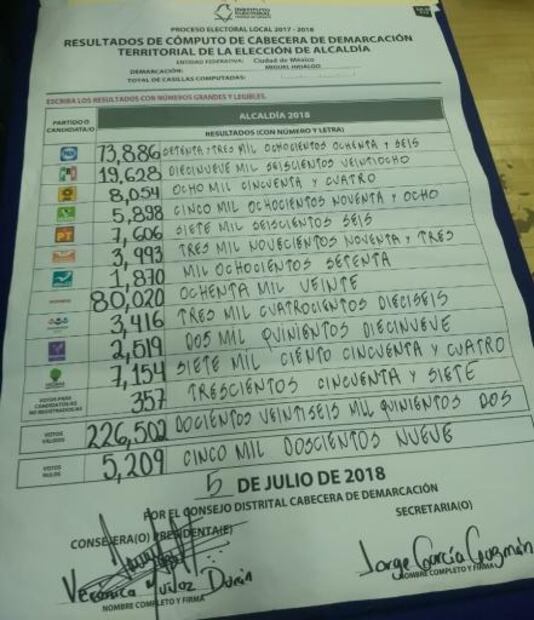 INSTITUTO ELECTORAL
PROCESO ELECTORAL LOCAL 2017 - 2018
RESULTADOS DE CÓMPUTO DE CABECERA DE DEMARCACIÓN
TERRITORIAL DE LA ELECCIÓN DE ALCALDÍA
ENTIDAD FEDERATIVA: Ciudad de México
DEMARCACIÓN: MIGUEL HIDALGO
TOTAL DE CASILLAS COMPUTADAS:
ESCRIBA LOS RESULTADOS CON NÚMEROS GRANDES Y LEGIBLES.
PARTIDO O CANDIDATA/O
ALCALDÍA 2018
RESULTADOS (CON NÚMERO Y LETRA)
PAN 73,886 SETENTA Y TRES MIL OCHOCIENTOS OCHENTA Y SEIS
PRI 19,628 DIECINUEVE MIL SEISCIENTOS VEINTIOCHO
8,054 OCHO MIL CINCUENTA Y CUATRO
5,898 CINCO MIL OCHOCIENTOS NOVENTA Y OCHO
PT 7,606 SIETE MIL SEISCIENTOS SEIS
3,993 TRES MIL NOVECIENTOS NOVENTA Y TRES
1,870 MIL OCHOCIENTOS SETENTA
morena 80,020 OCHENTA MIL VEINTE
3,416 TRES MIL CUATROCIENTOS DIECISEIS
2,519 DOS MIL QUINIENTOS DIECINUEVE
7,154 SIETE MIL CIENTO CINCUENTA Y CUATRO
VOTOS PARA CANDIDATAS/OS NO REGISTRADAS/OS 357 TRESCIENTOS CINCUENTA Y SIETE
VOTOS VÁLIDOS 226,502 DOCIENTOS VEINTISEIS MIL QUINIENTOS DOS
VOTOS NULOS 5,209 CINCO MIL DOSCIENTOS NUEVE
5 DE JULIO DE 2018
POR EL CONSEJO DISTRITAL CABECERA DE DEMARCACIÓN
CONSEJERA(O) PRESIDENTA(E)
SECRETARIA(O)
Verónica Muñoz Durán
Jorge García Guzmán
NOMBRE COMPLETO Y FIRMA
NOMBRE COMPLETO Y FIRMA